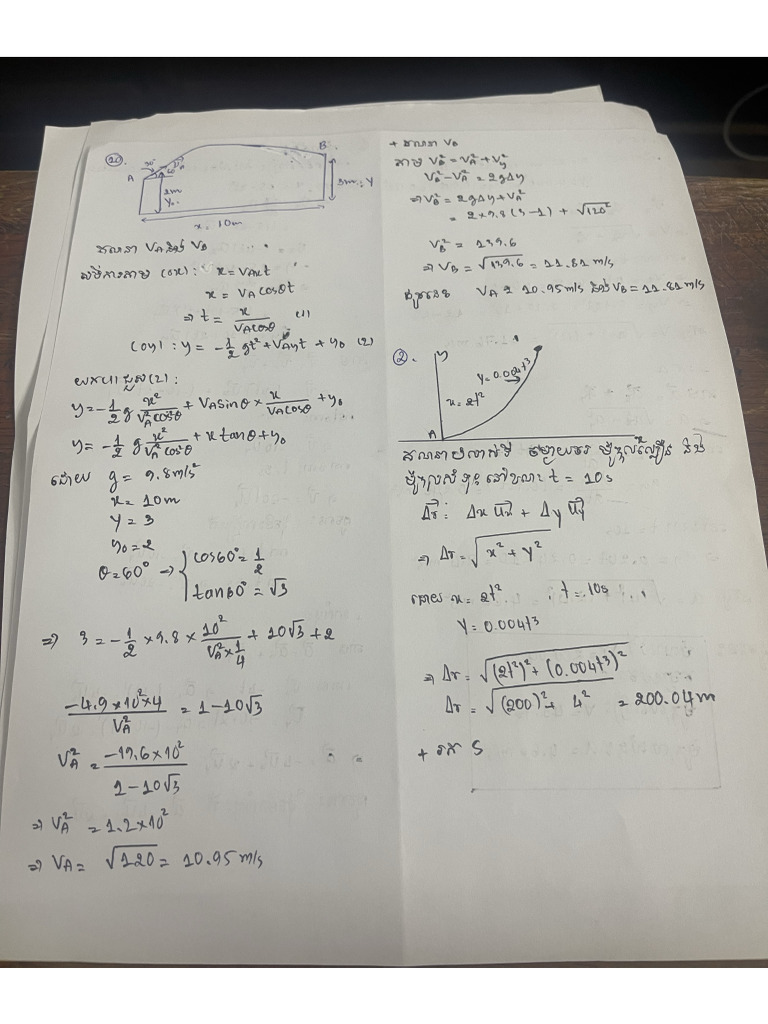 20.
A
30°
60°
VA
2m
Y₀
B
3m : Y
x = 10m
គណនា VA និង VB
សមីការតាម (ox) : x = VAxt
x = VA cosθt
⇒ t = x / VAcosθ (1)
(oy) : y = -1/2 gt² + VAyt + y₀ (2)
យក (1) ជួស (2) :
y = -1/2 g x² / VA² cos²θ + VA sinθ × x / VAcosθ + y₀
y = -1/2 g x² / VA² cos²θ + x tanθ + y₀
ដោយ g = 9.8m/s²
x = 10m
Y = 3
y₀ = 2
θ = 60° → { cos60° = 1/2
tan60° = √3
⇒ 3 = -1/2 × 9.8 × 10² / VA² × 1/4 + 10√3 + 2
-4.9 × 10² × 4 / VA² = 1 - 10√3
VA² = -19.6 × 10² / 1 - 10√3
⇒ VA² = 1.2 × 10²
⇒ VA = √120 = 10.95 m/s
+ គណនា VB
តាម VB² = VA² + Vy²
VB² - VA² = 2gΔy
⇒ VB² = 2gΔy + VA²
= 2 × 9.8 (3-1) + √120²
VB² = 139.6
⇒ VB = √139.6 = 11.81 m/s
ដូចនេះ VA = 10.95 m/s និង VB = 11.81 m/s
2.
y
Y = 0.004t³
x = 2t²
A
t = 10s
Δr⃗ : Δx u⃗x + Δy u⃗y
⇒ Δr = √x² + y²
ដោយ x = 2t² , t = 10s
Y = 0.004t³
⇒ Δr = √(2t²)² + (0.004t³)²
Δr = √(200)² + 4² = 200.04m
+ រក S